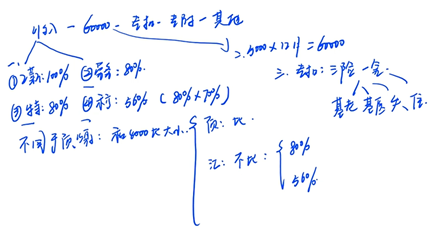 收入 - 60000 - 专扣 - 专附 - 其他
一、
①工薪:100% ②劳务:80%.
二、5000×12个=60000
③特:80% ④稿:56%(80%×70%)
三、专扣:三险一金
基老 基医 失、住
不同于预缴:和4000比大小
预:比
汇:不比:80%
56%